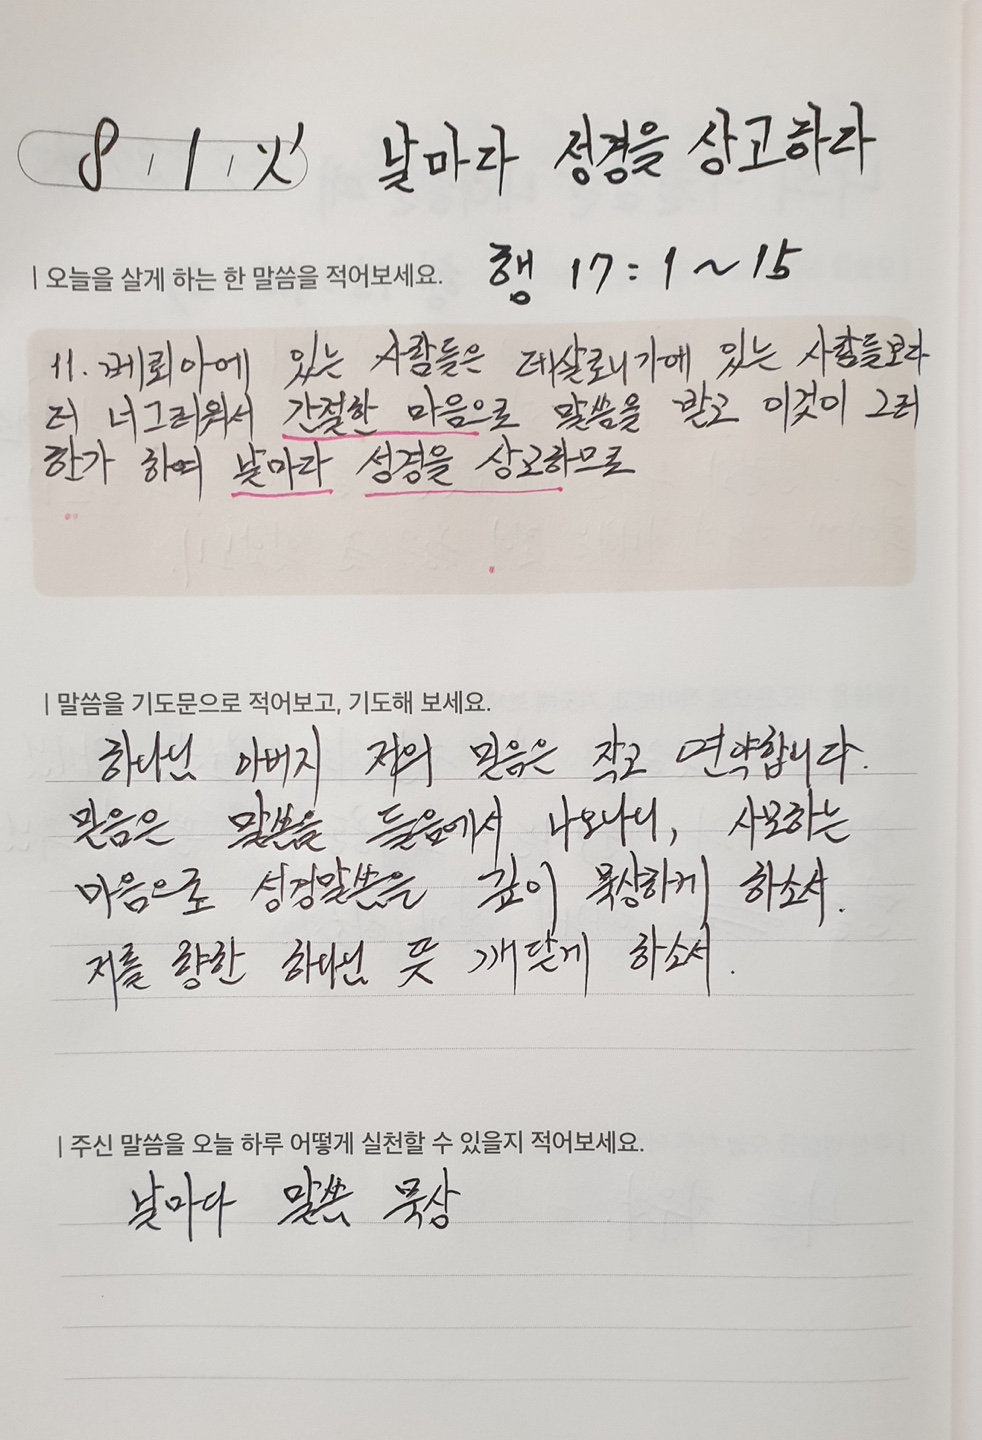 8 / 1 / 火 날마다 성경을 상고하라
| 오늘을 살게 하는 한 말씀을 적어보세요. 행 17:1~15
11. 베뢰아에 있는 사람들은 데살로니가에 있는 사람들보다
더 너그러워서 간절한 마음으로 말씀을 받고 이것이 그러
한가 하여 날마다 성경을 상고하므로
| 말씀을 기도문으로 적어보고, 기도해 보세요.
하나님 아버지 저의 믿음은 작고 연약합니다.
믿음은 말씀을 들음에서 나오나니, 사모하는
마음으로 성경말씀을 깊이 묵상하게 하소서.
저를 향한 하나님 뜻 깨닫게 하소서.
| 주신 말씀을 오늘 하루 어떻게 실천할 수 있을지 적어보세요.
날마다 말씀 묵상